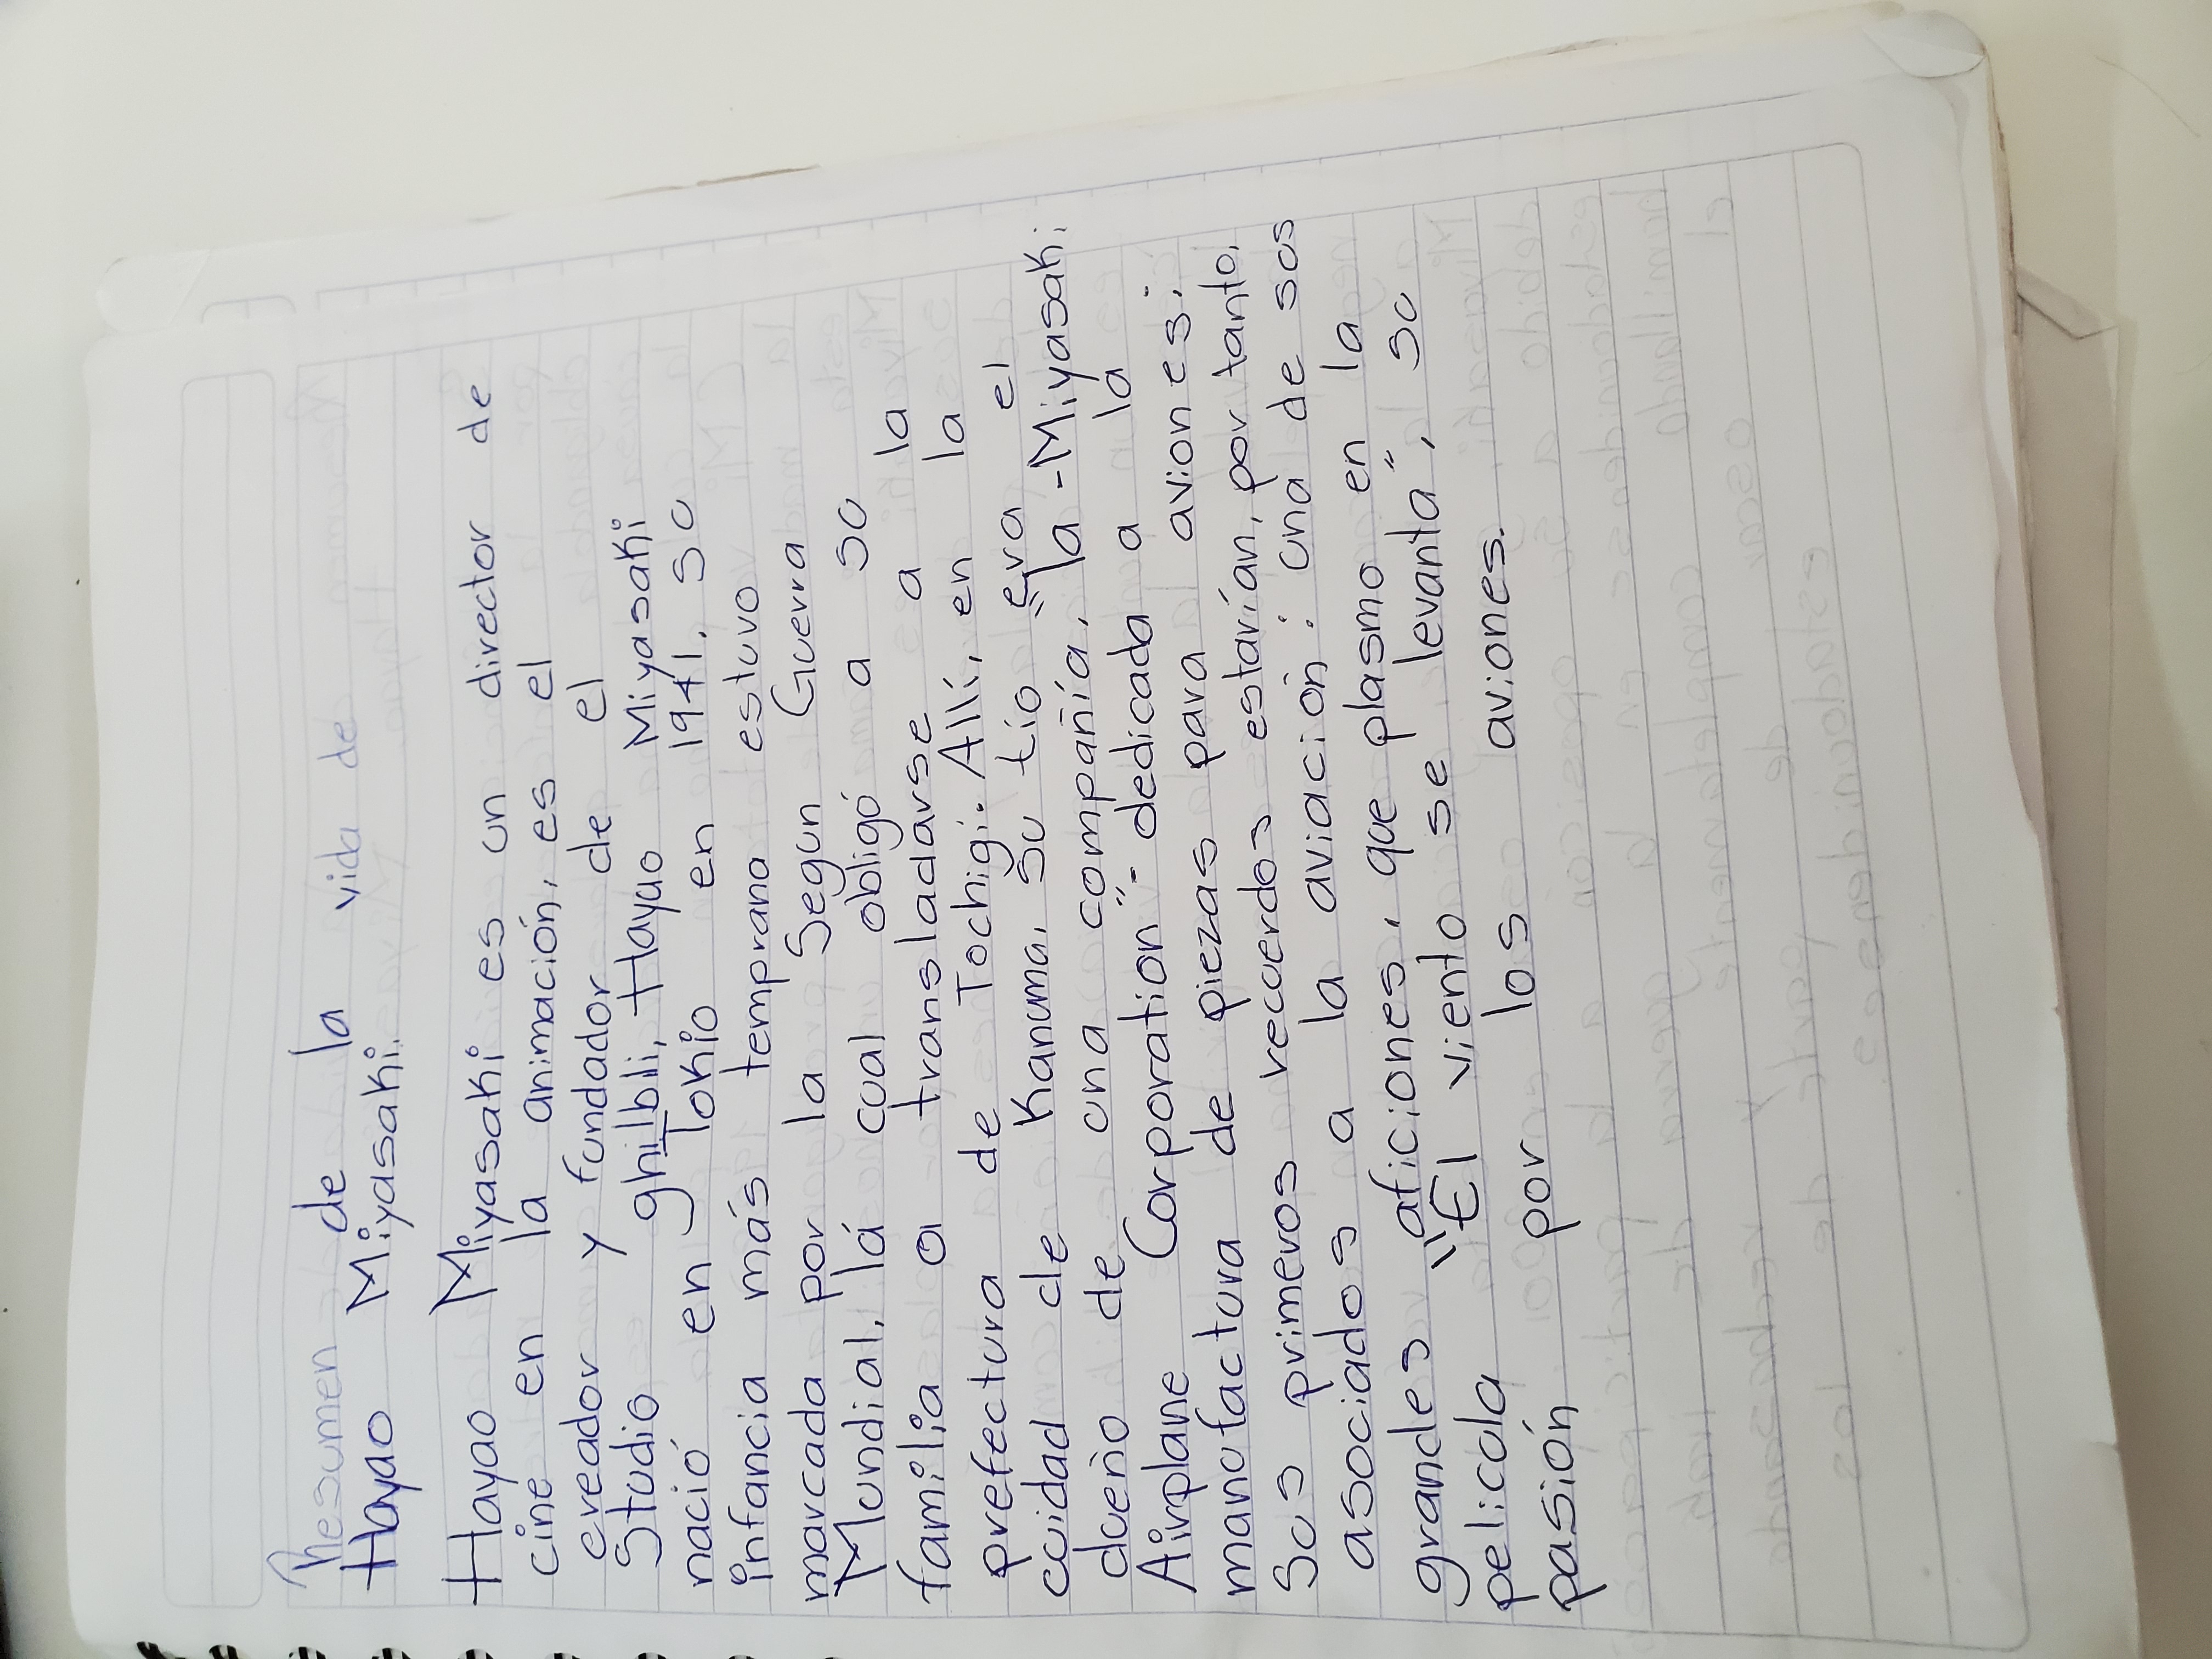 Resumen de la vida de
Hayao Miyasaki.
Hayao Miyasaki es un director de
cine en la animación, es el
creador y fundador de el
Studio ghilbli, Hayao Miyasaki
nació en Tokio en 1941. su
infancia más temprana estuvo
marcada por la Segun Guerra
Mundial, lá cual obligó a su
familia a transladarse a la
prefectura de Tochigi. Allí, en la
cuidad de Kanuma, su tío era el
dueño de una compañía, "la -Miyasaki
Airplane Corporation"- dedicada a la
manufactura de piezas para aviones;
Sus primeros recuerdos estarían, por tanto,
asociados a la aviación: una de sus
grandes aficiones, que plasmo en la
pelicula "El viento se levanta", su
pasión por los aviones.